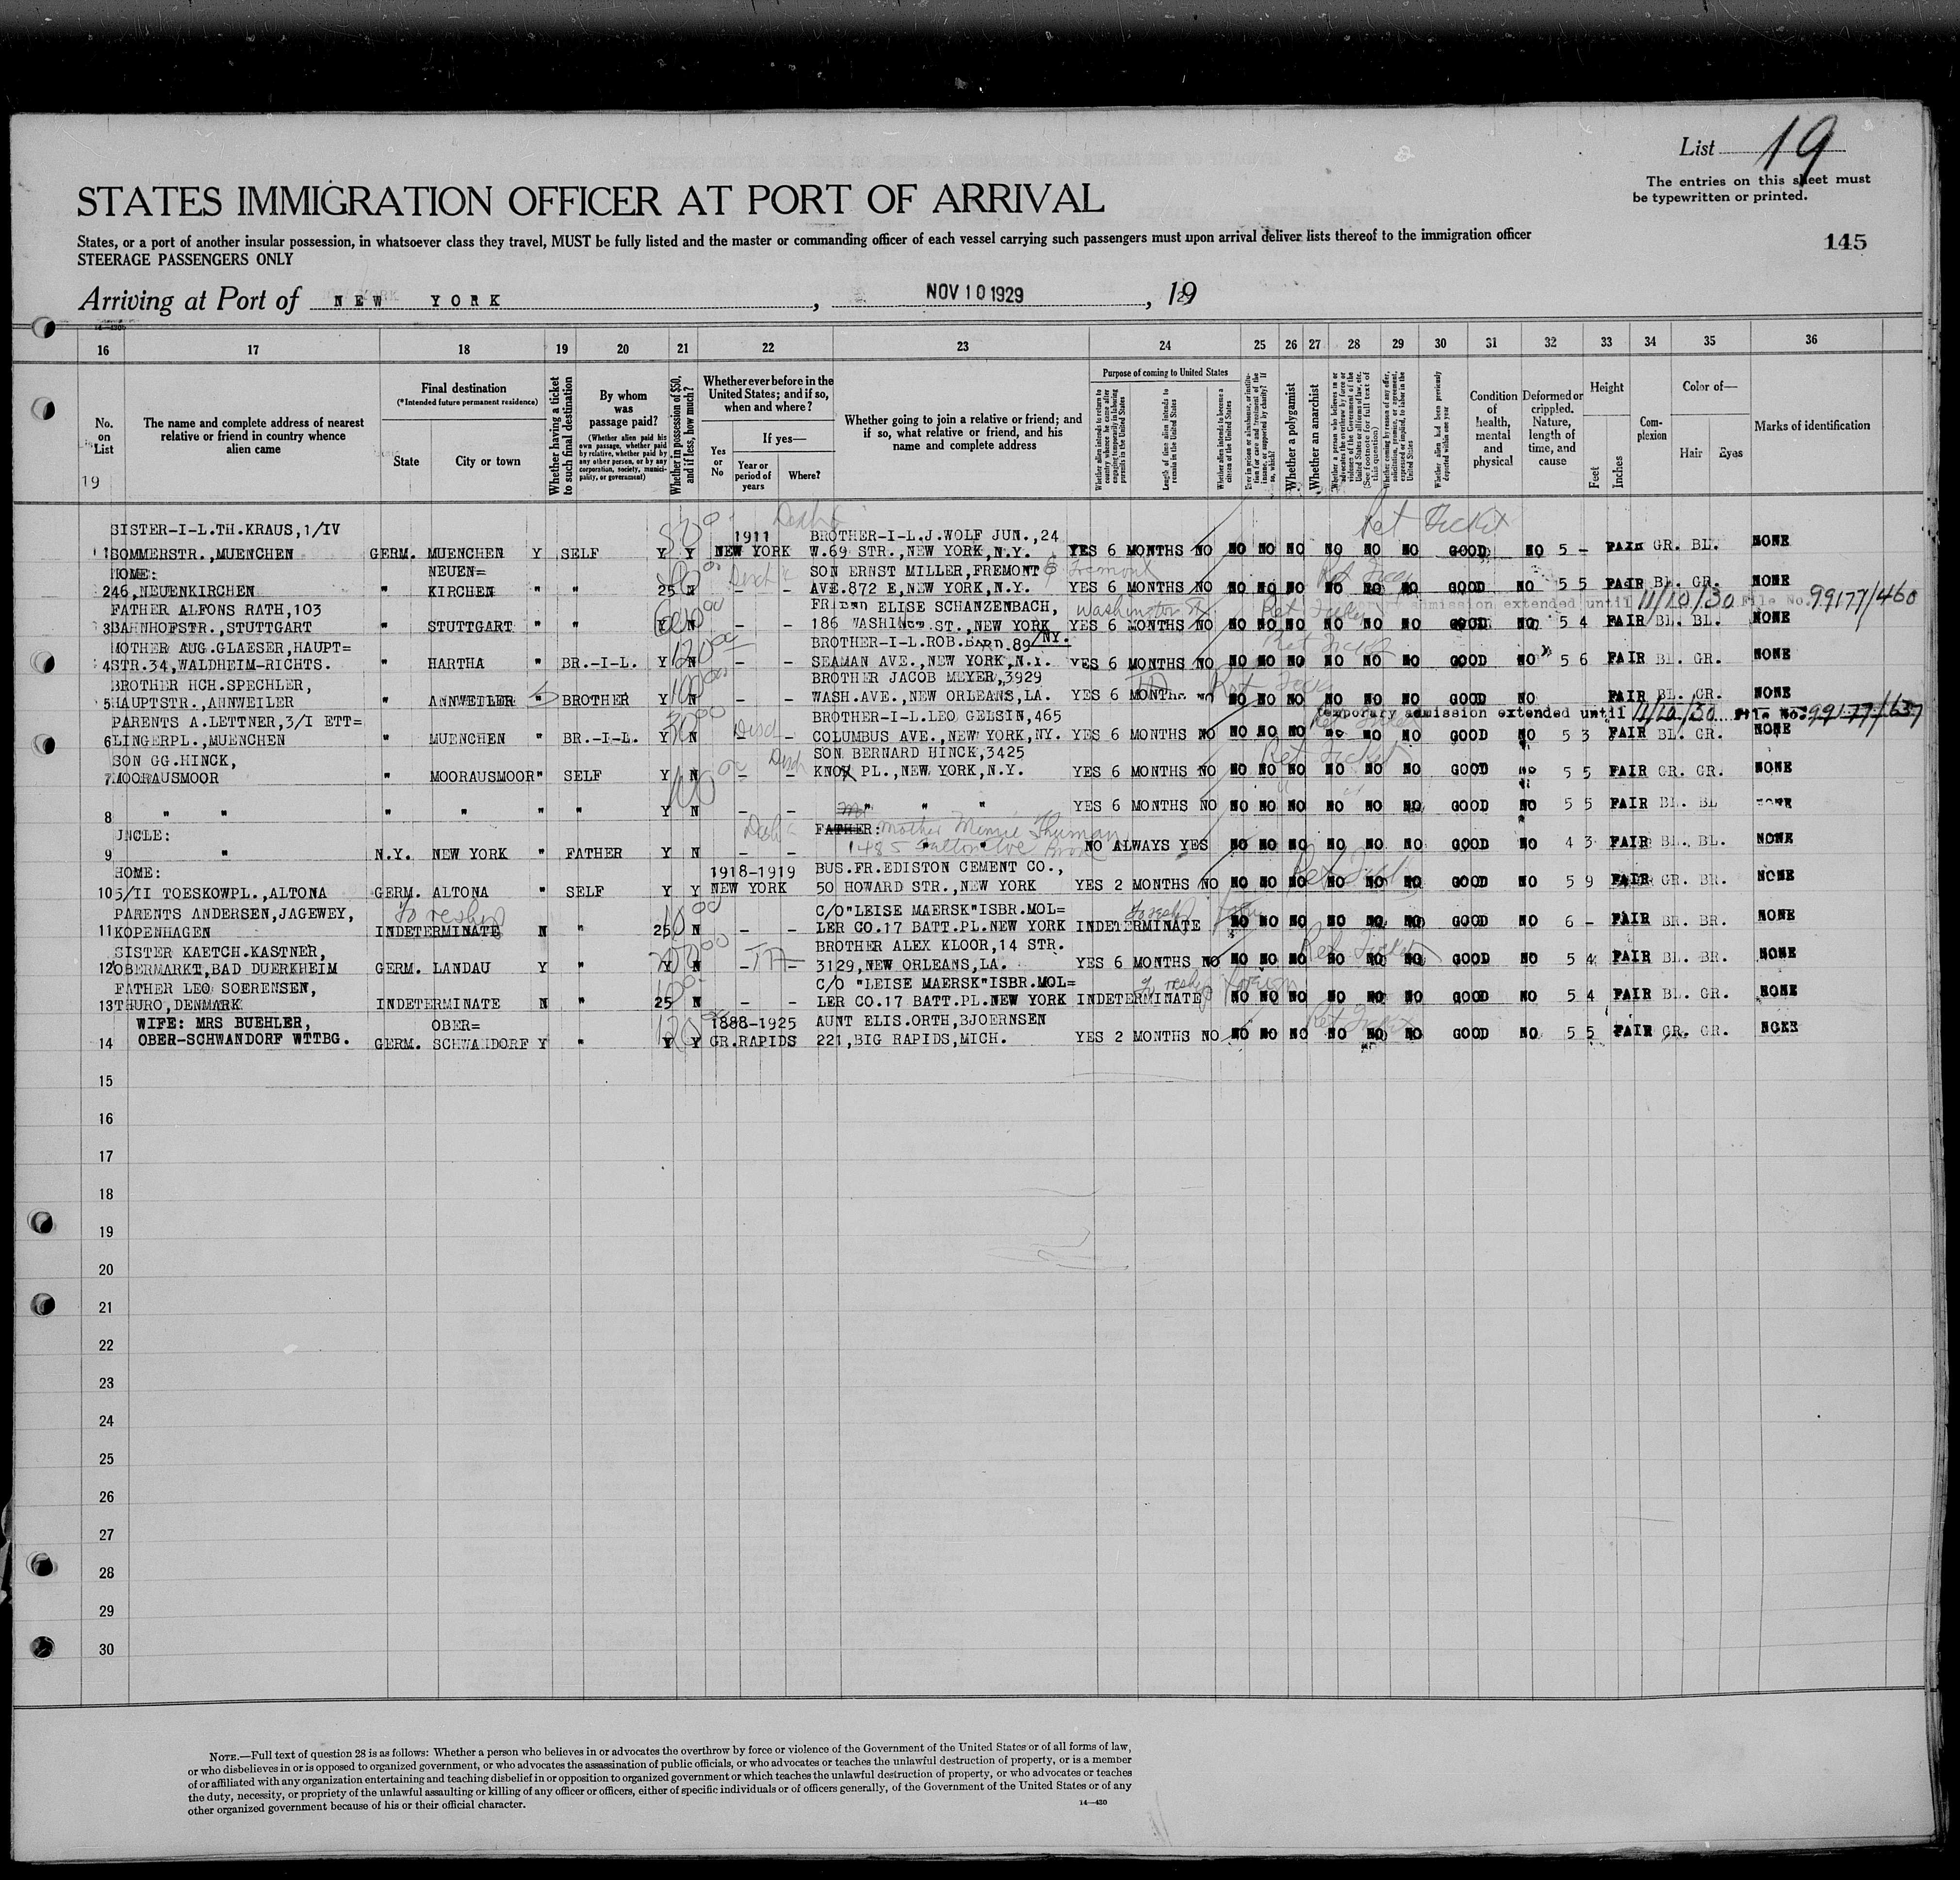 List 19
The entries on this sheet must
be typewritten or printed.
STATES IMMIGRATION OFFICER AT PORT OF ARRIVAL
145
States, or a port of another insular possession, in whatsoever class they travel, MUST be fully listed and the master or commanding officer of each vessel carrying such passengers must upon arrival deliver lists thereof to the immigration officer
STEERAGE PASSENGERS ONLY
Arriving at Port of NEW YORK, NOV 10 1929, 19
16 17 18 19 20 21 22 23 24 25 26 27 28 29 30 31 32 33 34 35 36
No. on List
The name and complete address of nearest relative or friend in country whence alien came
Final destination
(*Intended future permanent residence)
State
City or town
Whether having a ticket to such final destination
By whom was passage paid?
(Whether alien paid his own passage, whether paid by relative, whether paid by any other person, or by any corporation, society, municipality, or government)
Whether in possession of $50, and if less, how much?
Whether ever before in the United States; and if so, when and where?
Yes or No
If yes—
Year or period of years
Where?
Whether going to join a relative or friend; and if so, what relative or friend, and his name and complete address
Purpose of coming to United States
Whether alien intends to return to country whence he came after engaging temporarily in laboring pursuits in the United States
Length of time alien intends to remain in the United States
Whether alien intends to become a citizen of the United States
Whether a polygamist
Whether an anarchist
Whether alien had been previously deported within one year
Condition of health, mental and physical
Deformed or crippled. Nature, length of time, and cause
Height
Feet
Inches
Complexion
Color of—
Hair
Eyes
Marks of identification
19
SISTER-I-L.TH.KRAUS,1/IV 1911 BROTHER-I-L.J.WOLF JUN.,24 Ret Ticket
1 SOMMERSTR.,MUENCHEN GERM. MUENCHEN Y SELF Y Y NEW YORK W.69 STR.,NEW YORK,N.Y. YES 6 MONTHS NO NO NO NO NO NO NO GOOD NO 5 - FAIR GR. BL. NONE
HOME: NEUEN= SON ERNST MILLER,FREMONT Fremont
2 46,NEUENKIRCHEN " KIRCHEN " " 25 N - - AVE.872 E,NEW YORK,N.Y. YES 6 MONTHS NO NO NO NO NO NO NO GOOD NO 5 5 FAIR BL. GR. NONE
admission extended until 11/10/30 File No. 99177/460
FATHER ALFONS RATH,103 FRIEND ELISE SCHANZENBACH, Washington Ret Ticket
3 BAHNHOFSTR.,STUTTGART " STUTTGART " " Y N - - 186 WASHING. ST.,NEW YORK YES 6 MONTHS NO NO NO NO NO NO NO GOOD NO 5 4 FAIR BL. BL. NONE
MOTHER AUG.GLAESER,HAUPT= BROTHER-I-L.ROB.BARD.89/NY. Ret Ticket
4 STR.34,WALDHEIM-RICHTS. " HARTHA " BR.-I-L. Y N - - SEAMAN AVE.,NEW YORK,N.Y. YES 6 MONTHS NO NO NO NO NO NO NO GOOD NO 5 6 FAIR BL. GR. NONE
BROTHER HCH.SPECHLER, BROTHER JACOB MEYER,3929 Ret Ticket
5 HAUPTSTR.,ANNWEILER " ANNWEILER " BROTHER Y N - - WASH.AVE.,NEW ORLEANS,LA. YES 6 MONTHS NO NO NO NO NO NO NO GOOD NO FAIR BL. GR. NONE
temporary admission extended until 11/10/30 File No. 99177/637
PARENTS A.LETTNER,3/I ETT= BROTHER-I-L.LEO GELSIN,465
6 LINGERPL.,MUENCHEN " MUENCHEN " BR.-I-L. Y N - - COLUMBUS AVE.,NEW YORK,NY. YES 6 MONTHS NO NO NO NO NO NO NO GOOD NO 5 3 FAIR BL. GR. NONE
SON GG.HINCK, SON BERNARD HINCK,3425 Ret Ticket
7 MOORAUSMOOR " MOORAUSMOOR " SELF Y N - - KNOX PL.,NEW YORK,N.Y. YES 6 MONTHS NO NO NO NO NO NO NO GOOD NO 5 5 FAIR GR. GR. NONE
8 " " " " " " Y N - - " " " YES 6 MONTHS NO NO NO NO NO NO NO GOOD NO 5 5 FAIR BL. BL NONE
UNCLE: FATHER: Mother Minnie Thuman
9 " N.Y. NEW YORK " FATHER Y N - - 1485 NO ALWAYS YES NO NO NO NO NO NO GOOD NO 4 3 FAIR BL. BL. NONE
HOME: 1918-1919 BUS.FR.EDISTON CEMENT CO.,
10 5/II TOESKOWPL.,ALTONA GERM. ALTONA " SELF Y Y NEW YORK 50 HOWARD STR.,NEW YORK YES 2 MONTHS NO NO NO NO NO NO NO GOOD NO 5 9 FAIR GR. BR. NONE
PARENTS ANDERSEN,JAGEWEY, To reship C/O"LEISE MAERSK"ISBR.MOL=
11 KOPENHAGEN INDETERMINATE N " 25 N - - LER CO.17 BATT.PL.NEW YORK INDETERMINATE NO NO NO NO NO NO GOOD NO 6 - FAIR BR. BR. NONE
SISTER KAETCH.KASTNER, BROTHER ALEX KLOOR,14 STR. Ret Ticket
12 OBERMARKT,BAD DUERKHEIM GERM. LANDAU Y " Y N - - 3129,NEW ORLEANS,LA. YES 6 MONTHS NO NO NO NO NO NO NO GOOD NO 5 4 FAIR BL. BR. NONE
FATHER LEO SOERENSEN, C/O "LEISE MAERSK"ISBR.MOL= To reship foreign
13 THURO,DENMARK INDETERMINATE N " 25 N - - LER CO.17 BATT.PL.NEW YORK INDETERMINATE NO NO NO NO NO NO GOOD NO 5 4 FAIR BL. GR. NONE
WIFE: MRS BUEHLER, OBER= 1888-1925 AUNT ELIS.ORTH,BJOERNSEN Ret Ticket
14 OBER-SCHWANDORF WTTBG. GERM. SCHWANDORF Y " Y Y GR.RAPIDS 221,BIG RAPIDS,MICH. YES 2 MONTHS NO NO NO NO NO NO NO GOOD NO 5 5 FAIR GR. GR. NONE
15
16
17
18
19
20
21
22
23
24
25
26
27
28
29
30
NOTE.—Full text of question 28 is as follows: Whether a person who believes in or advocates the overthrow by force or violence of the Government of the United States or of all forms of law,
or who disbelieves in or is opposed to organized government, or who advocates the assassination of public officials, or who advocates or teaches the unlawful destruction of property, or is a member
of or affiliated with any organization entertaining and teaching disbelief in or opposition to organized government or which teaches the unlawful destruction of property, or who advocates or teaches
the duty, necessity, or propriety of the unlawful assaulting or killing of any officer or officers, either of specific individuals or of officers generally, of the Government of the United States or of any
other organized government because of his or their official character.
14—430